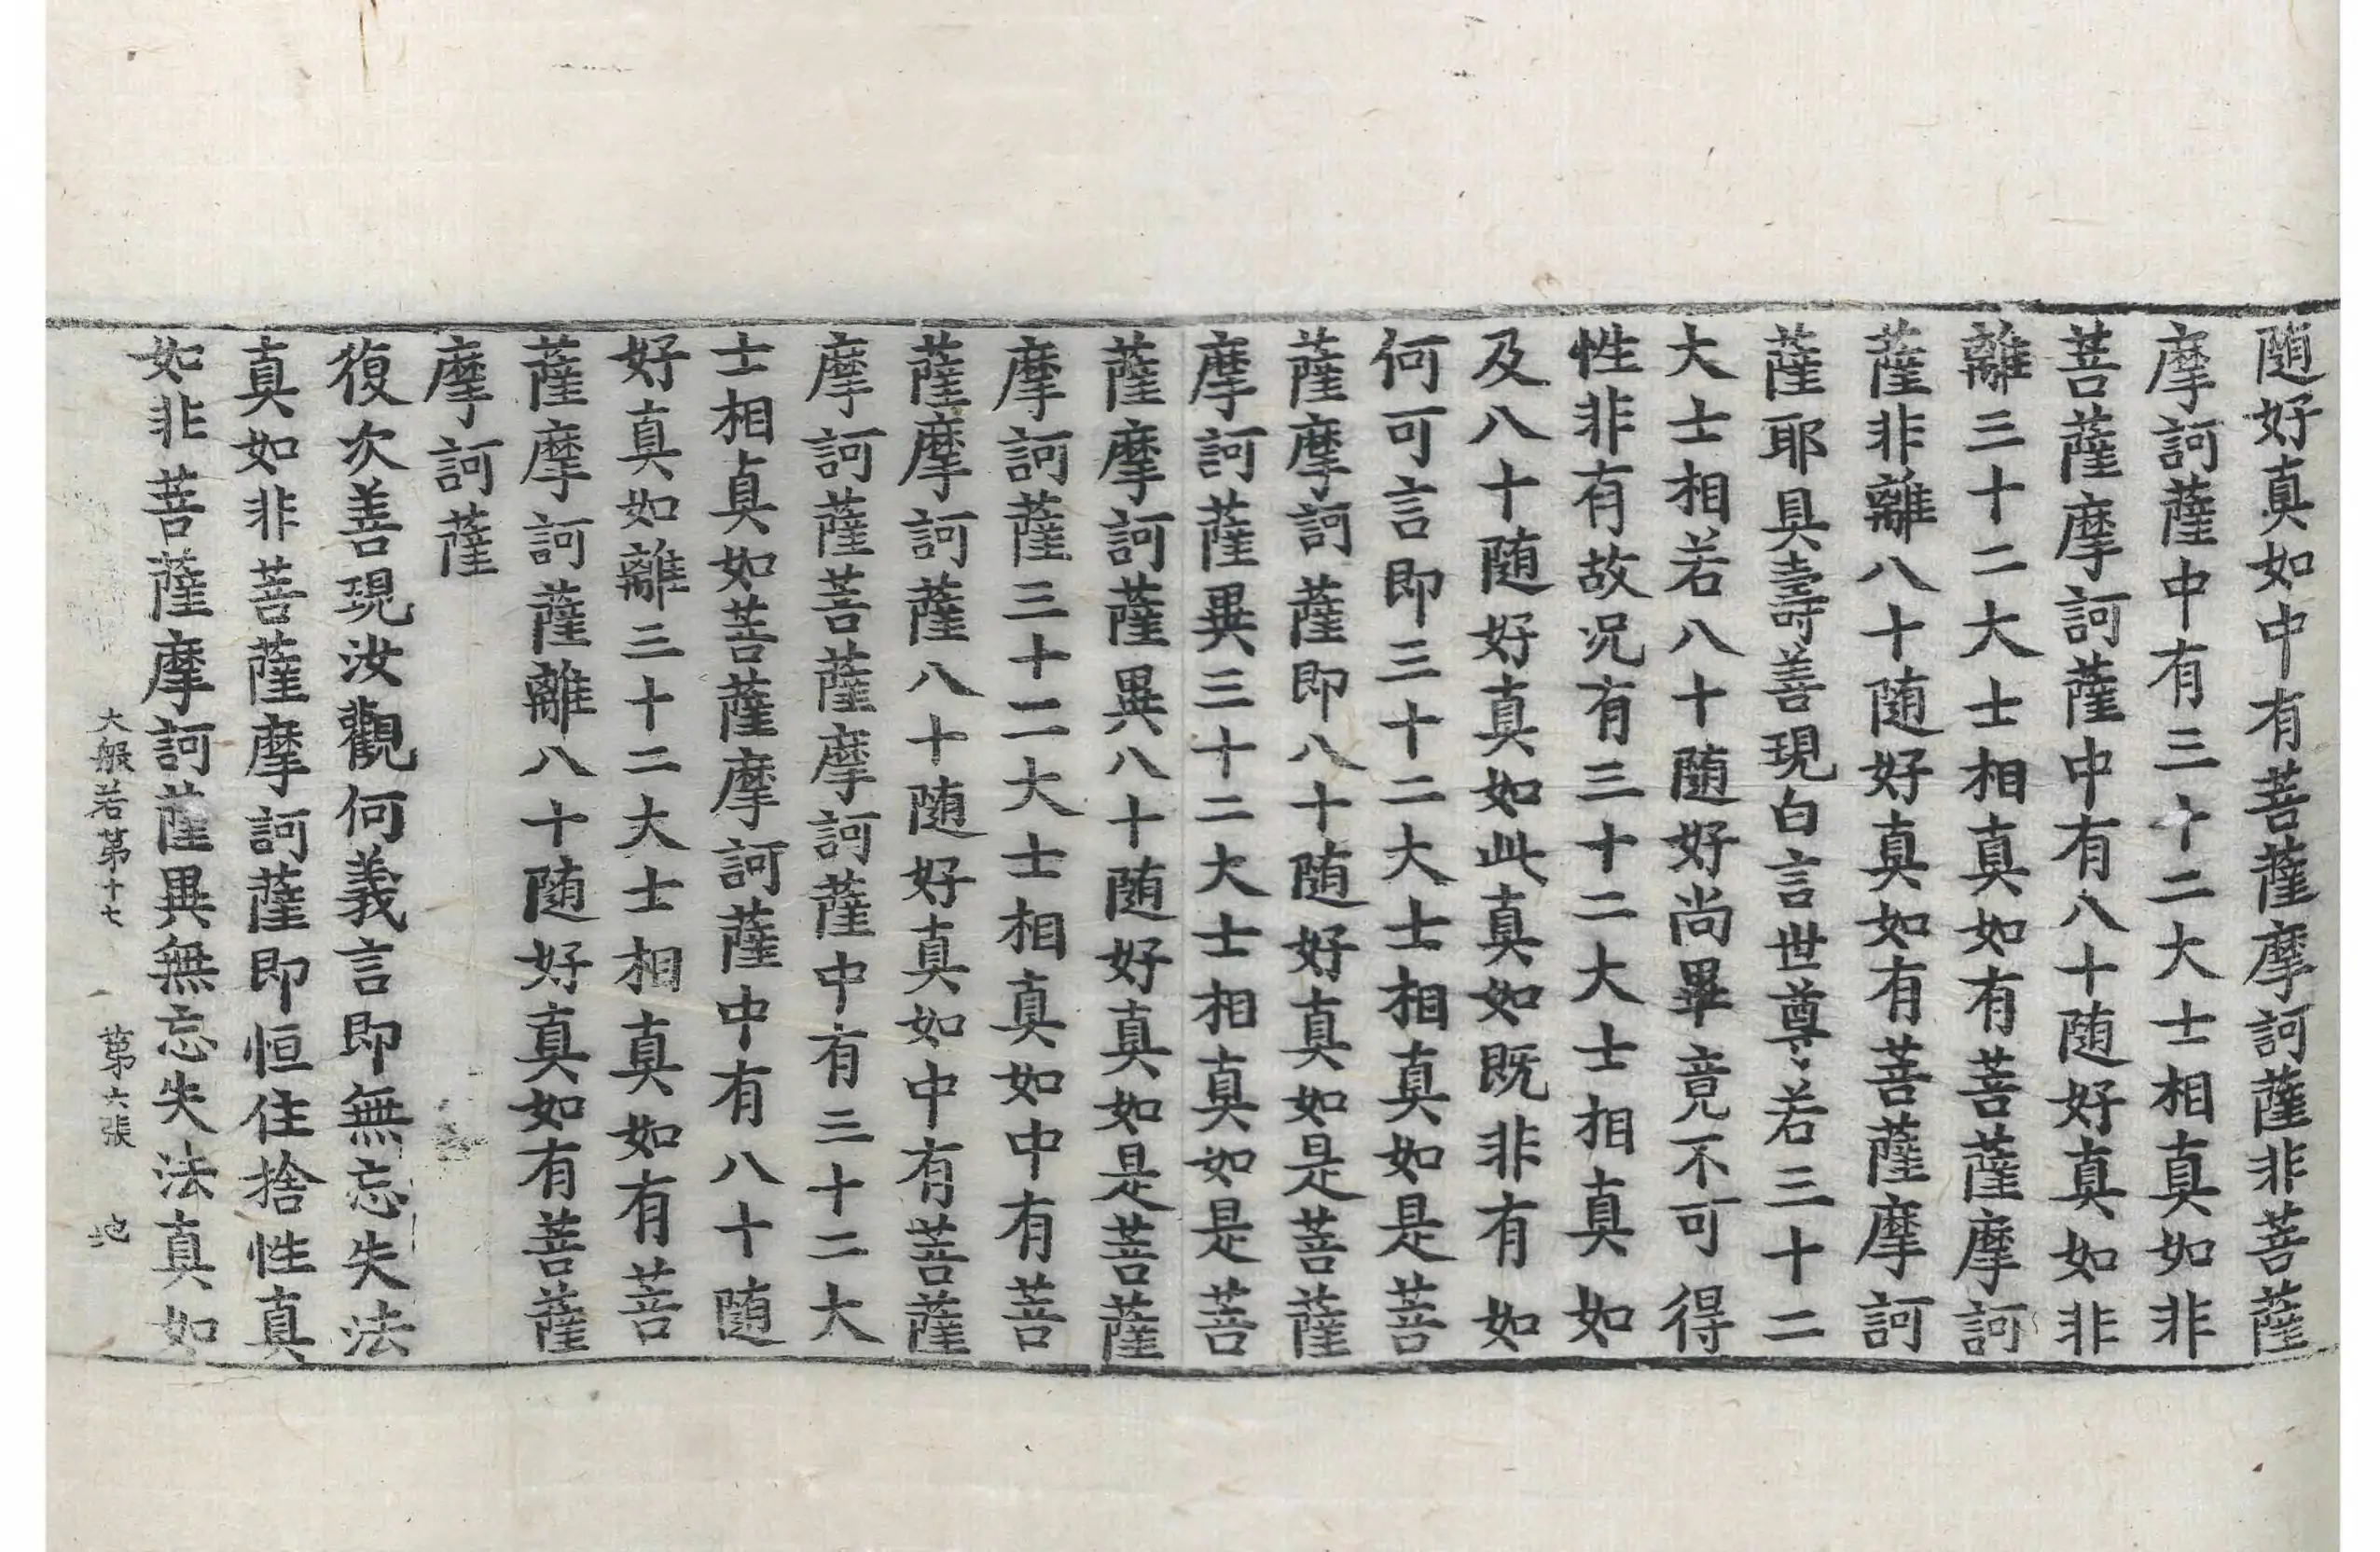 随好真如中有菩薩摩訶薩非菩薩
摩訶薩中有三十二大士相真如非
菩薩摩訶薩中有八十随好真如非
離三十二大士相真如有菩薩摩訶
薩非離八十随好真如有菩薩摩訶
薩耶具壽善現白言世尊若三十二
大士相若八十随好尚畢竟不可得
性非有故况有三十二大士相真如
及八十随好真如此真如既非有如
何可言即三十二大士相真如是菩
薩摩訶薩即八十随好真如是菩薩
摩訶薩異三十二大士相真如是菩
薩摩訶薩異八十随好真如是菩薩
摩訶薩三十二大士相真如中有菩
薩摩訶薩八十随好真如中有菩薩
摩訶薩菩薩摩訶薩中有三十二大
士相真如菩薩摩訶薩中有八十随
好真如離三十二大士相真如有菩
薩摩訶薩離八十随好真如有菩薩
摩訶薩
復次善現汝觀何義言即無忘失法
真如非菩薩摩訶薩即恒住捨性真
如非菩薩摩訶薩異無忘失法真如
大般若第十七 第六張 地